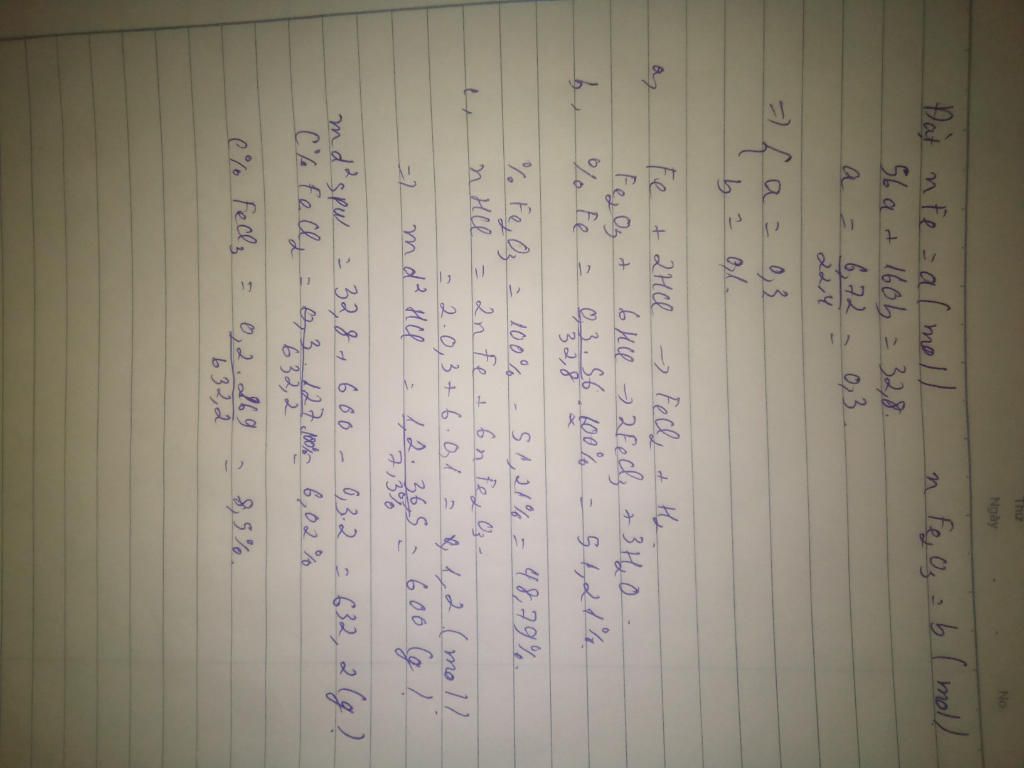 Thứ
Ngày
No.
Đặt nFe = a (mol) nFe₂O₃ = b (mol)
56a + 160b = 32,8.
a = 6,72/22,4 = 0,3.
=> { a = 0,3
b = 0,1.
a, Fe + 2HCl → FeCl₂ + H₂.
Fe₂O₃ + 6HCl → 2FeCl₃ + 3H₂O.
b, % Fe = 0,3.56/32,8 . 100% = 51,21%.
% Fe₂O₃ = 100% - 51,21% = 48,79%.
c, nHCl = 2nFe + 6nFe₂O₃.
= 2.0,3 + 6.0,1 = 1,2 (mol)
=> md² HCl = 1,2.36,5/7,3% = 600 (g).
md² spư = 32,8 + 600 - 0,3.2 = 632,2 (g).
C% FeCl₂ = 0,3.127/632,2 .100% = 6,02%
C% FeCl₃ = 0,2.269/632,2 = 8,5%.